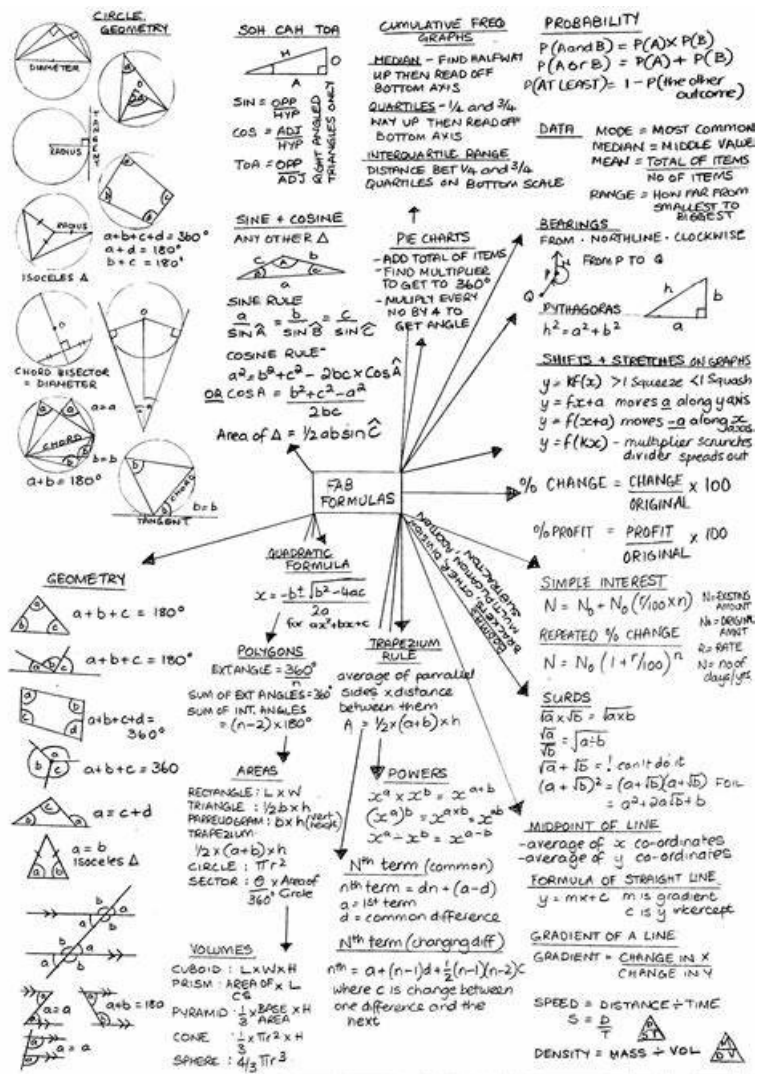 CIRCLE GEOMETRY
DIAMETER
RADIUS
a+b+c+d = 360°
a+d = 180°
b+c = 180°
RADIUS
ISOCELES Δ
CHORD BISECTOR
= DIAMETER
a=a
CHORD
b=b
a+b = 180°
CHORD
TANGENT
b=b
SOH CAH TOA
H
O
A
SIN = OPP
HYP
COS = ADJ
HYP
TOA = OPP
ADJ
RIGHT ANGLED
TRIANGLES ONLY
SINE + COSINE
ANY OTHER Δ
SINE RULE
a/SIN Â = b/SIN B̂ = c/SIN Ĉ
COSINE RULE-
a² = b² + c² - 2bc x Cos Â
OR COS A = b² + c² - a²
2bc
Area of Δ = 1/2 ab sin Ĉ
CUMULATIVE FREQ
GRAPHS
MEDIAN - FIND HALFWAY
UP THEN READ OFF
BOTTOM AXIS
QUARTILES - 1/4 and 3/4
WAY UP THEN READ OFF
BOTTOM AXIS
INTERQUARTILE RANGE
DISTANCE BET 1/4 and 3/4
QUARTILES ON BOTTOM SCALE
PIE CHARTS
- ADD TOTAL OF ITEMS
- FIND MULTIPLIER
TO GET TO 360°
- MULIPLY EVERY
NO BY 4 TO
GET ANGLE
PROBABILITY
P(A and B) = P(A) x P(B)
P(A or B) = P(A) + P(B)
P(AT LEAST) = 1 - P(the other
outcome)
DATA
MODE = MOST COMMON
MEDIAN = MIDDLE VALUE
MEAN = TOTAL OF ITEMS
NO OF ITEMS
RANGE = HOW FAR FROM
SMALLEST TO
BIGGEST
BEARINGS
FROM · NORTHLINE · CLOCKWISE
N
P
FROM P TO Q
Q
PYTHAGORAS
h² = a² + b²
h
b
a
SHIFTS + STRETCHES ON GRAPHS
y = kf(x) >1 squeeze <1 squash
y = fx+a moves a along y axis
y = f(x+a) moves -a along x axis
y = f(kx) - multiplier scrunches
divider spreads out
FAB
FORMULAS
% CHANGE = CHANGE x 100
ORIGINAL
% PROFIT = PROFIT x 100
ORIGINAL
BRACKETS, OTHER, DIVISION
MULTIPLICATION, ADDITION
SUBTRACTION
SIMPLE INTEREST
N = N₀ + N₀ (r/100 x n)
REPEATED % CHANGE
N = N₀ (1 + r/100)ⁿ
N = EXISTING
AMOUNT
N₀ = ORIGINAL
AMNT
R = RATE
N = no of
days/yrs
SURDS
√a x √b = √axb
√a/√b = √a÷b
√a + √b = ! can't do it
(a + √b)² = (a+√b)(a+√b) FOIL
= a² + 2a√b + b
MIDPOINT OF LINE
- average of x co-ordinates
- average of y co-ordinates
FORMULA OF STRAIGHT LINE
y = mx + c m is gradient
c is y intercept
GRADIENT OF A LINE
GRADIENT = CHANGE IN X
CHANGE IN Y
SPEED = DISTANCE ÷ TIME
S = D
T
D
S T
DENSITY = MASS ÷ VOL
M
D V
GEOMETRY
a+b+c = 180°
a+b+c = 180°
a+b+c+d =
360°
a+b+c = 360
a = c+d
a = b
Isoceles Δ
a=a
a+b = 180
a = a
QUADRATIC
FORMULA
x = -b ± √b² - 4ac
2a
for ax² + bx + c
POLYGONS
EXT ANGLE = 360°
n
SUM OF EXT ANGLES = 360°
SUM OF INT. ANGLES
= (n-2) x 180°
AREAS
RECTANGLE : L x W
TRIANGLE : 1/2 b x h
b x h (vert height)
TRAPEZIUM
1/2 x (a+b) x h
CIRCLE : πr²
SECTOR : θ/360° x Area of Circle
VOLUMES
CUBOID : L x W x H
PRISM : AREA OF CS x L
PYRAMID : 1/3 x BASE AREA x H
CONE : 1/3 x πr² x H
SPHERE : 4/3 πr³
TRAPEZIUM
RULE
average of parralel
sides x distance
between them
A = 1/2 x (a+b) x h
POWERS
xᵃ x xᵇ = xᵃ⁺ᵇ
(xᵃ)ᵇ = xᵃˣᵇ = xᵃᵇ
xᵃ ÷ xᵇ = xᵃ⁻ᵇ
Nth term (common)
nth term = dn + (a-d)
a = 1st term
d = common difference
Nth term (changing diff)
nth = a + (n-1)d + 1/2(n-1)(n-2)c
where c is change between
one difference and the
next